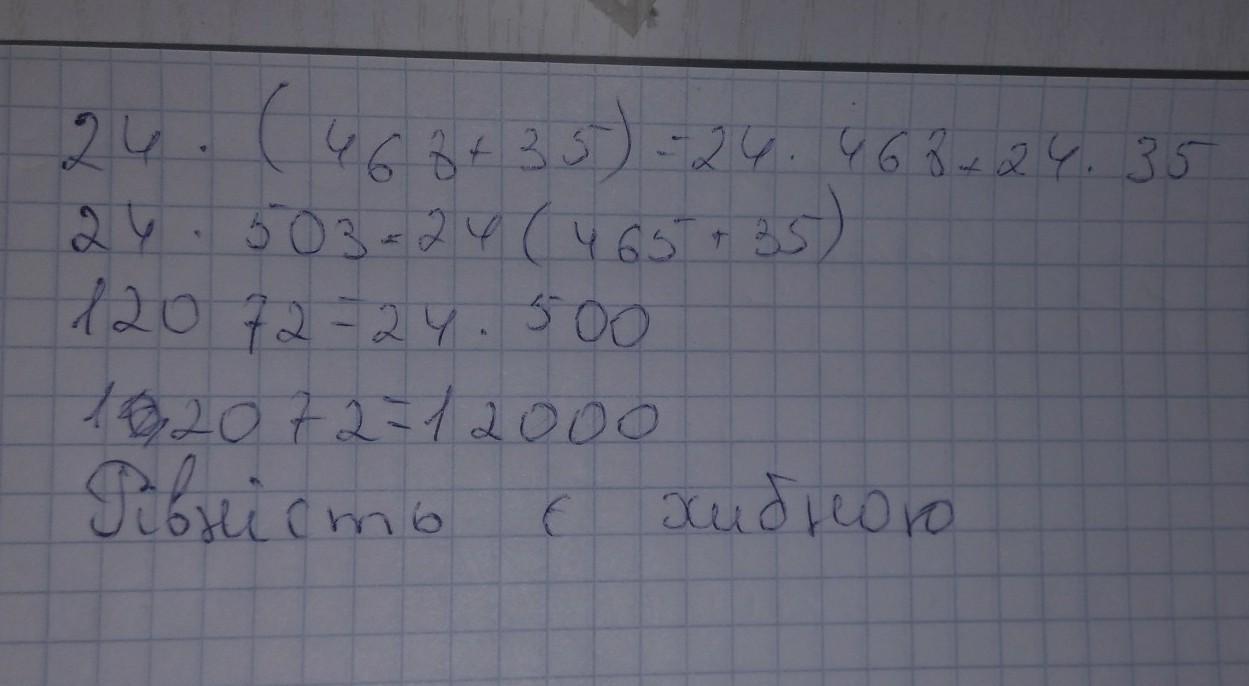 24 · (468 + 35) = 24 · 468 + 24 · 35
24 · 503 = 24 (465 + 35)
12072 = 24 · 500
12072 = 12000
Рівність є хибною